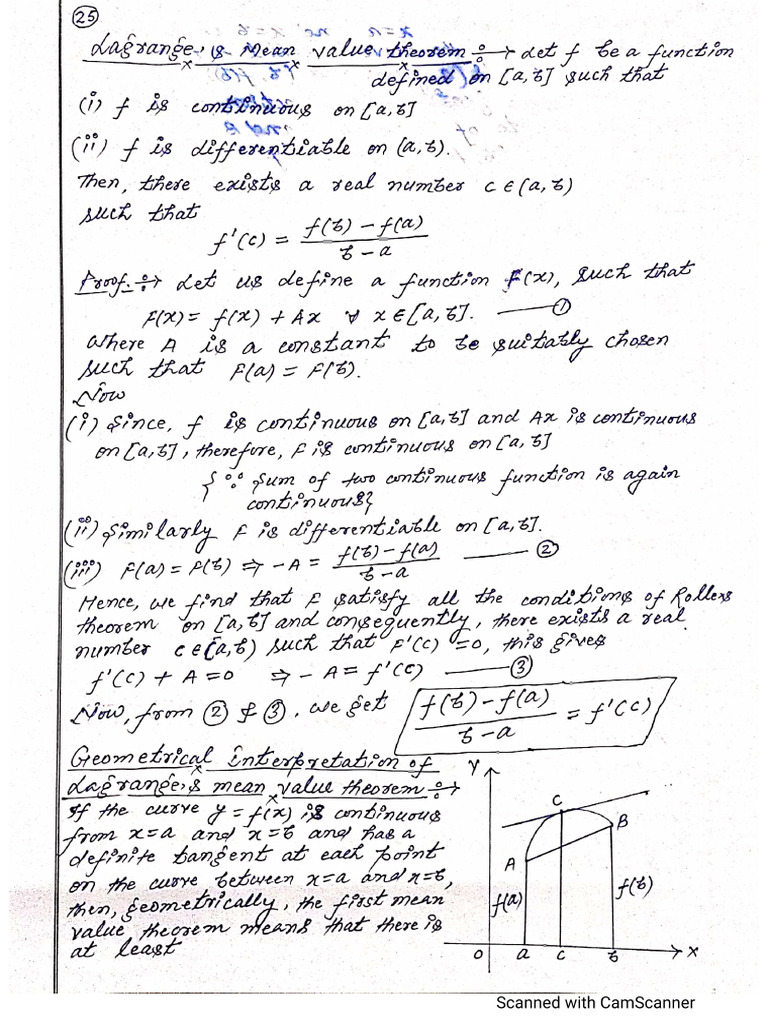 25
Lagrange's Mean value theorem ÷→ Let f be a function
defined on [a,b] such that
(i) f is continuous on [a,b]
(ii) f is differentiable on (a,b).
Then, there exists a real number c∈(a,b)
such that
f'(c) = (f(b) - f(a))/(b-a)
Proof ÷→ Let us define a function F(x), such that
F(x) = f(x) + Ax ∀ x∈[a,b]. —— ①
where A is a constant to be suitably chosen
such that F(a) = F(b).
Now
(i) Since, f is continuous on [a,b] and Ax is continuous
on [a,b], therefore, F is continuous on [a,b]
{∵ Sum of two continuous function is again
continuous}
(ii) Similarly F is differentiable on [a,b].
(iii) F(a) = F(b) ⇒ -A = (f(b)-f(a))/(b-a) —— ②
Hence, we find that F satisfy all the conditions of Rolles
theorem on [a,b] and consequently, there exists a real
number c∈(a,b) such that F'(c) = 0, this gives
f'(c) + A = 0 ⇒ -A = f'(c) —— ③
Now, from ② & ③, we get (f(b)-f(a))/(b-a) = f'(c)
Geometrical interpretation of
Lagrange's mean value theorem ÷→
If the curve y = f(x) is continuous
from x=a and x=b and has a
definite tangent at each point
on the curve between x=a and x=b,
then, geometrically, the first mean
value theorem means that there is
at least
Y
C
B
A
f(a)
f(b)
O a c b X
Scanned with CamScanner